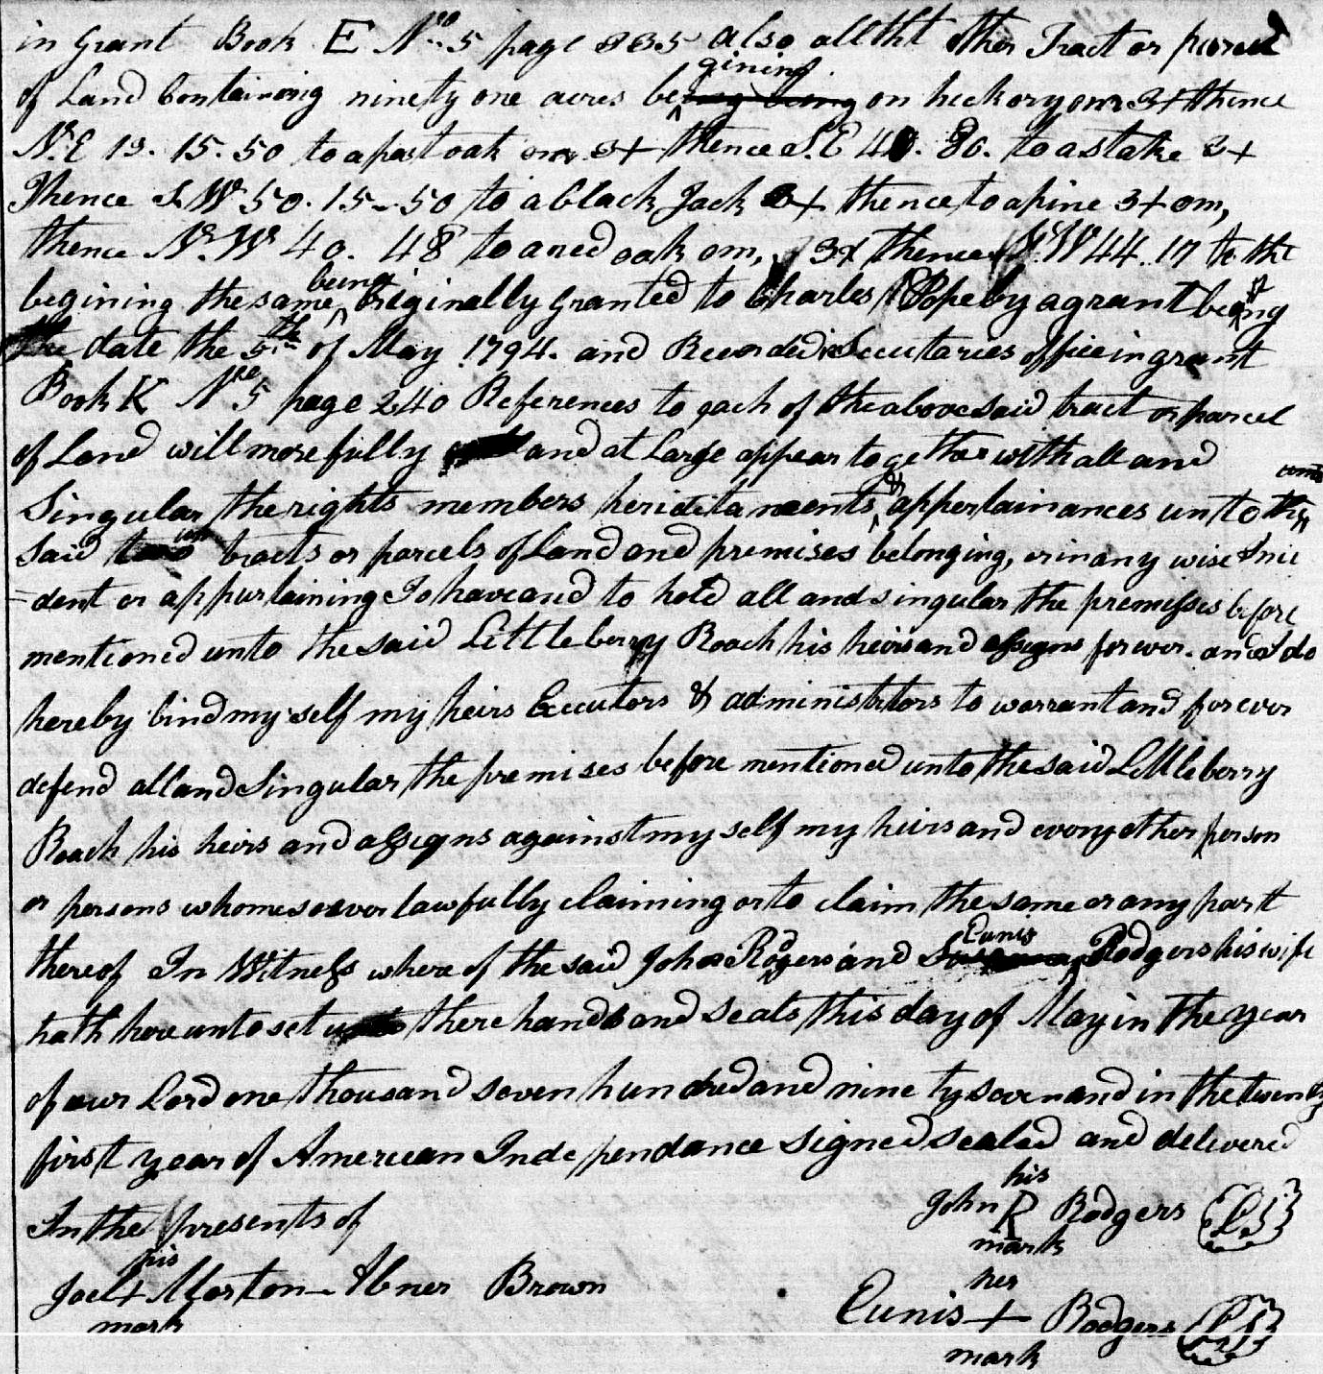 in Grant Book E No. 5 page 835 also all tht other Tract or parcel
of Land Containing ninety one acres begining on heckory om 3+ thence
N.E 19. 15. 50 to a post oak om 3+ thence S.E 40. 80. to a stake 3+
Thence S.W 50. 15-50 to a black Jack 3+ thence to a pine 3+ om,
thence N.W 40. 48 to a red oak om, 3x thence N.W 44. 17 to the
begining the same being originally Granted to Charles Pope by a grant being
the date the 5th of May 1794. and Recorded in Secutaries office in grant
Book K No 5 page 240 References to each of the above said tract or parcel
of Land will more fully and at Large appear together with all and
Singular the rights members heriditaments & appertainances unto the
said two tracts or parcels of Land and premises belonging, or in any wise Inci
=dent or appurtaining To have and to hold all and singular the premises before
mentioned unto the said Littleberry Roach his heirs and assigns forever. and do
hereby bind my self my heirs Executors & administrators to warrant and forever
defend all and Singular the premises before mentioned unto the said Littleberry
Roach his heirs and assigns against my self my heirs and every other person
or persons whomesoever lawfully claiming or to claim the same or any part
thereof In Witness where of the said John Rodgers and Eunis Rodgers his wife
hath here unto set there hands and seals this day of May in the year
of our Lord one thousand seven hundred and nine ty seven and in the twenty
first year of American Inde pendance signed sealed and delivered
In the presents of
his
John R Rodgers LS
mark
his
Joel + Morton - Abner Brown
mark
her
Eunis + Rodgers LS
mark